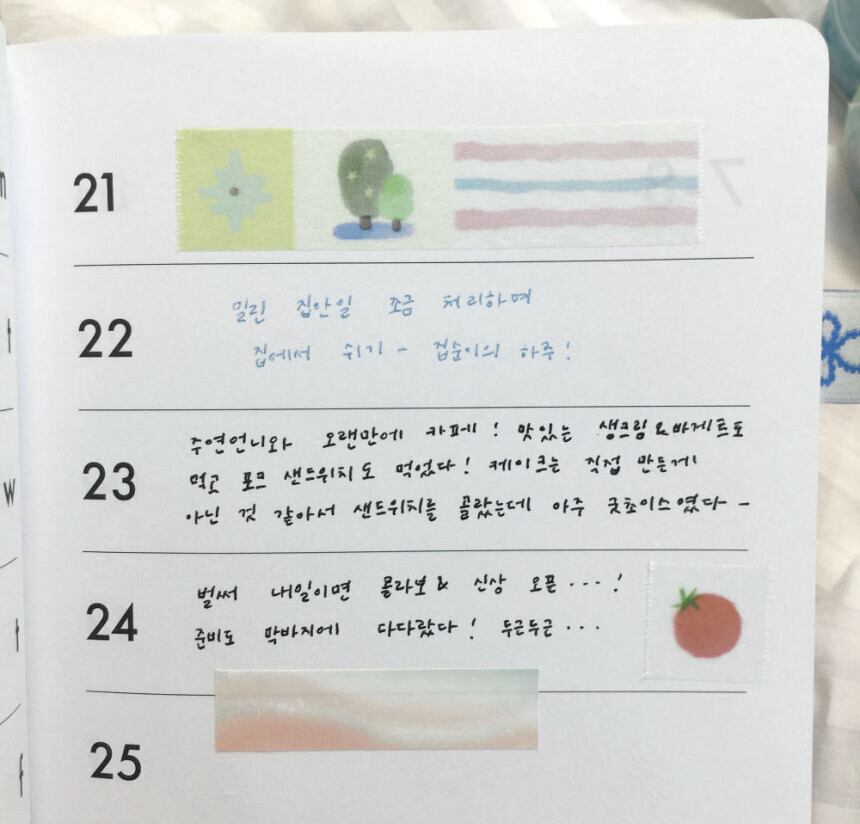 21
22
밀린 집안일 쪼금 처리하며
집에서 쉬기 - 집순이의 하루!
23
주연언니와 오랜만에 카페! 맛있는 생크림&바게트도
먹고 포크 샌드위치도 먹었다! 케이크는 직접 만든게
아닌 것 같아서 샌드위치를 골랐는데 아주 굿초이스였다 -
24
벌써 내일이면 콜라보& 신상 오픈...!
준비도 막바지에 다다랐다! 두근두근...
25